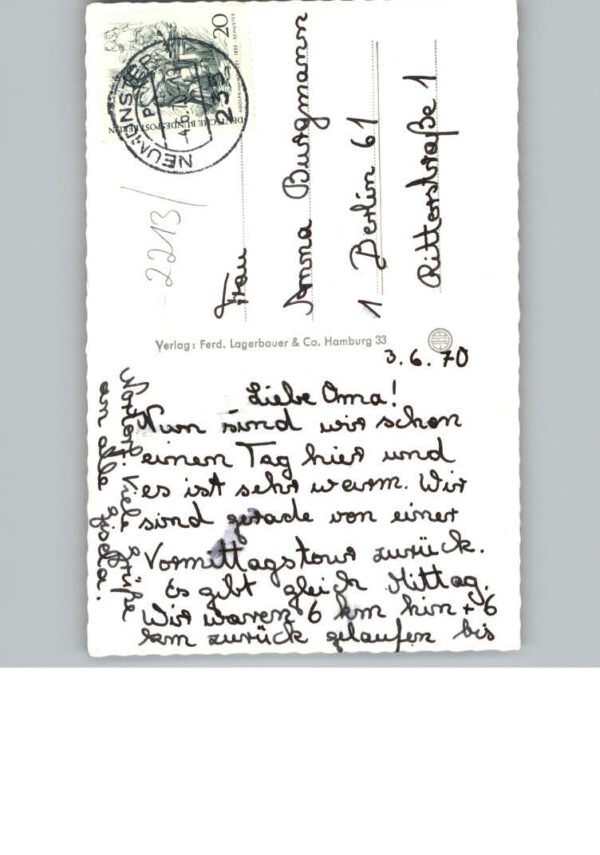 3.6.70
Liebe Oma!
Nun sind wir schon
einen Tag hier und
es ist sehr warm. Wir
sind gerade von einer
Vormittagstour zurück.
Es gibt gleich Mittag.
Wir waren 6 km hin + 6
km zurück gelaufen bis
Nortorf. Viele Grüße
an alle Gisela.
Frau
Anna Burgmann
1 Berlin 61
Ritterstraße 1
Verlag: Ferd. Lagerbauer & Co. Hamburg 33
2213/
20
DEUTSCHE BUNDESPOST BERLIN
NEUMÜNSTER
235